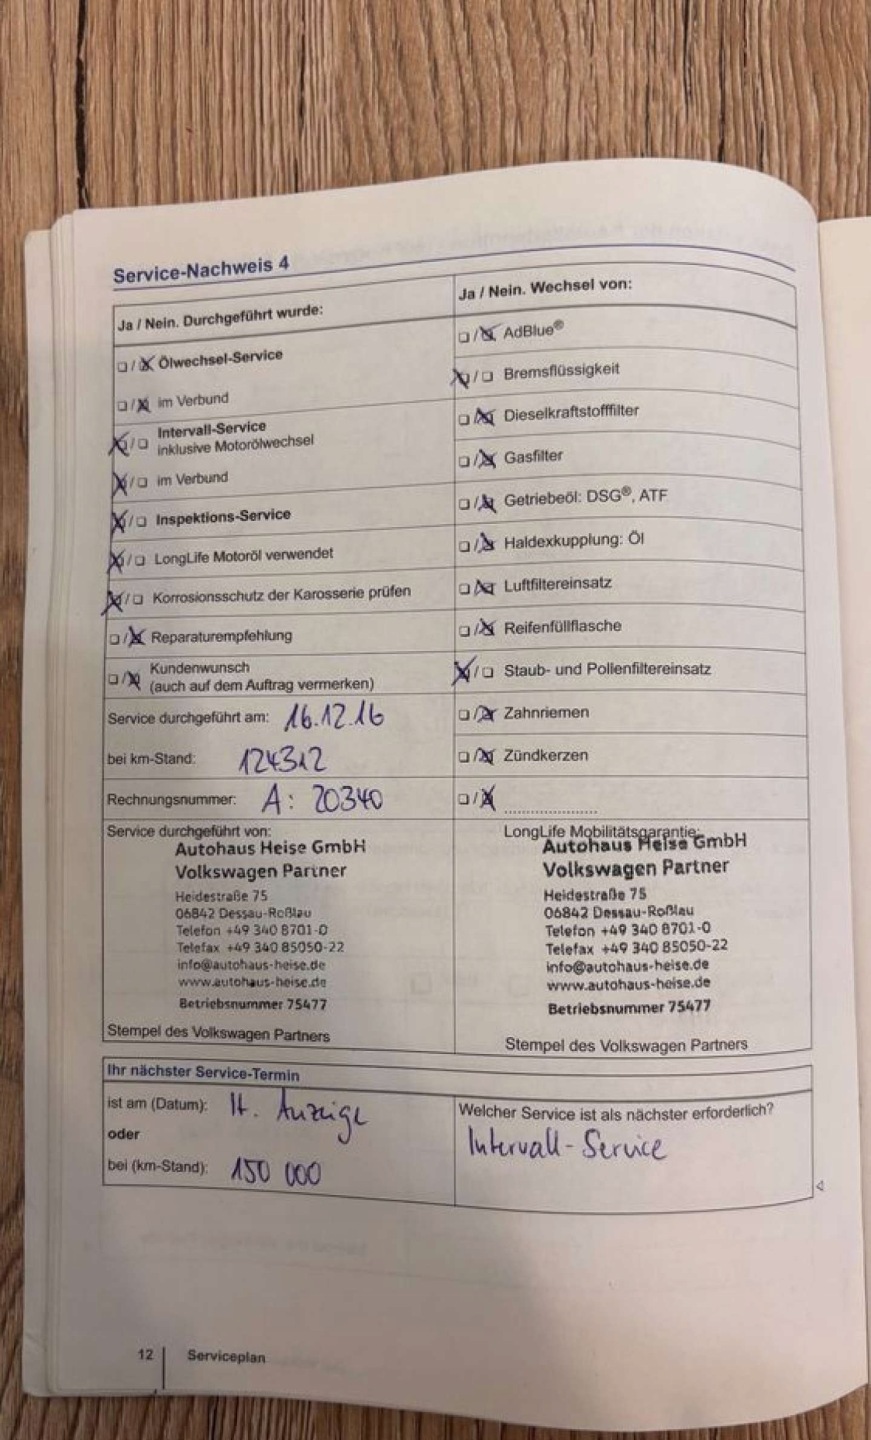 Service-Nachweis 4
Ja / Nein. Durchgeführt wurde:
Ölwechsel-Service
im Verbund
Intervall-Service
inklusive Motorölwechsel
im Verbund
Inspektions-Service
LongLife Motoröl verwendet
Korrosionsschutz der Karosserie prüfen
Reparaturempfehlung
Kundenwunsch
(auch auf dem Auftrag vermerken)
Service durchgeführt am: 16.12.16
bei km-Stand: 124312
Rechnungsnummer: A: 20340
Service durchgeführt von:
Autohaus Heise GmbH
Volkswagen Partner
Heidestraße 75
06842 Dessau-Roßlau
Telefon +49 340 8701-0
Telefax +49 340 85050-22
info@autohaus-heise.de
www.autohaus-heise.de
Betriebsnummer 75477
Stempel des Volkswagen Partners
Ja / Nein. Wechsel von:
AdBlue®
Bremsflüssigkeit
Dieselkraftstofffilter
Gasfilter
Getriebeöl: DSG®, ATF
Haldexkupplung: Öl
Luftfiltereinsatz
Reifenfüllflasche
Staub- und Pollenfiltereinsatz
Zahnriemen
Zündkerzen
LongLife Mobilitätsgarantie:
Autohaus Heise GmbH
Volkswagen Partner
Heidestraße 75
06842 Dessau-Roßlau
Telefon +49 340 8701-0
Telefax +49 340 85050-22
info@autohaus-heise.de
www.autohaus-heise.de
Betriebsnummer 75477
Stempel des Volkswagen Partners
Ihr nächster Service-Termin
ist am (Datum): lt. Anzeige
oder
bei (km-Stand): 150 000
Welcher Service ist als nächster erforderlich?
Intervall-Service
12 Serviceplan